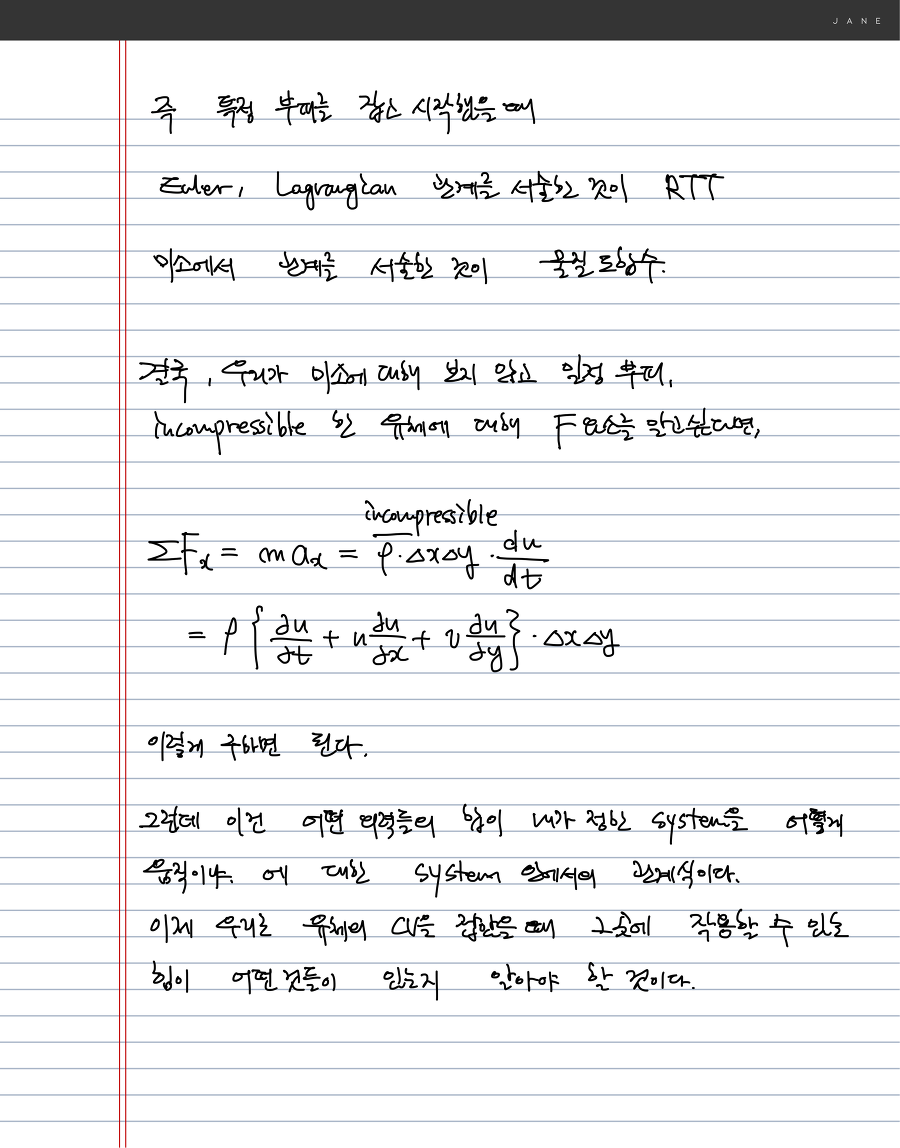 JANE
즉 특정 부피를 잡고 시작했을 때
Euler, Lagrangian 관계를 서술한 것이 RTT
미소에서 관계를 서술한 것이 물질도함수.
결국, 우리가 미소에 대해 보지 않고 일정 부피,
incompressible 한 유체에 대해 F 요소를 알고싶다면,
incompressible
ΣFₓ = maₓ = ρ·△x△y·du/dt
= ρ{∂u/∂t + u ∂u/∂x + v ∂u/∂y}·△x△y
이렇게 구하면 된다.
그런데 이건 어떤 외력들의 힘이 내가 정한 system을 어떻게
움직이냐. 에 대한 system 안에서의 관계식이다.
이제 우리는 유체의 CV을 잡았을 때 그곳에 작용할 수 있는
힘이 어떤 것들이 있는지 알아야 할 것이다.